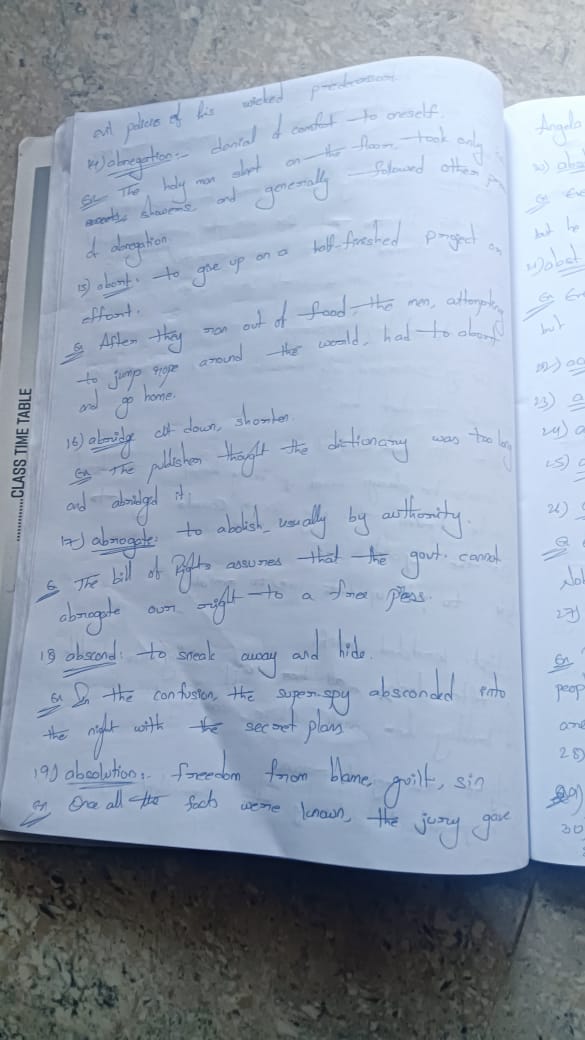 evil policies of his wicked predecessor.
14) abnegation:- denial of comfort to oneself.
Ex The holy man slept on the floor, took only
showers and generally followed other
of abnegation
15) abort: to give up on a half-finished project or
effort.
Ex After they ran out of food, the men, attempting
to jump rope around the world, had to abort
and go home.
16) abridge cut down, shorten.
Ex The publisher thought the dictionary was too long
and abridged it.
17) abrogate: to abolish, usually by authority.
Ex The bill of Rights assures that the govt. cannot
abrogate our right to a free press.
18 abscond: to sneak away and hide.
Ex In the confusion, the super-spy absconded into
the night with the secret plans
19) absolution:- freedom from blame, guilt, sin
Ex Once all the facts were known, the jury gave
CLASS TIME TABLE
Angela
20) abs
Ex
but he
21) abst
Ex
but
22)
23) a
24) a
25)
26)
27)
Ex
peop
are
28)
29)
30